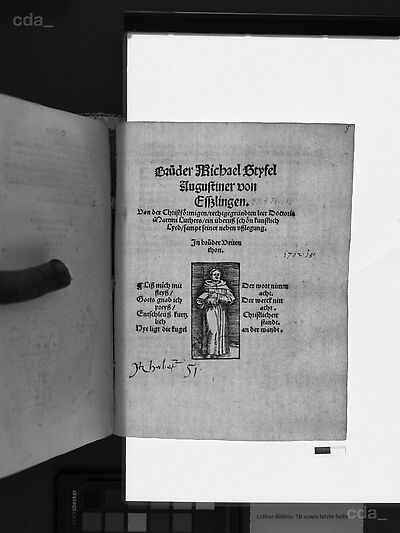 cda_
Brůder Michael Styfel
Augustiner von
Esszlingen.
Von der Christförmigen / rechtgegründten leer Doctoris
Martini Luthers / ein überuß schön kunstlich
Lyed / sampt seiner neben vßlegung.
In brůder Veiten
thon.
Liß mich mit
fleyß /
Gotts gnad ich
preyß /
Entschleuß kurtz
lich
Hye ligt die kugel
Der wort nimm
acht.
Der werck nitt
acht.
Christlicher
standt.
an der wandt.
51
colorchecker
Luther-Bildnis: TB sowie letzte Seite
cda_